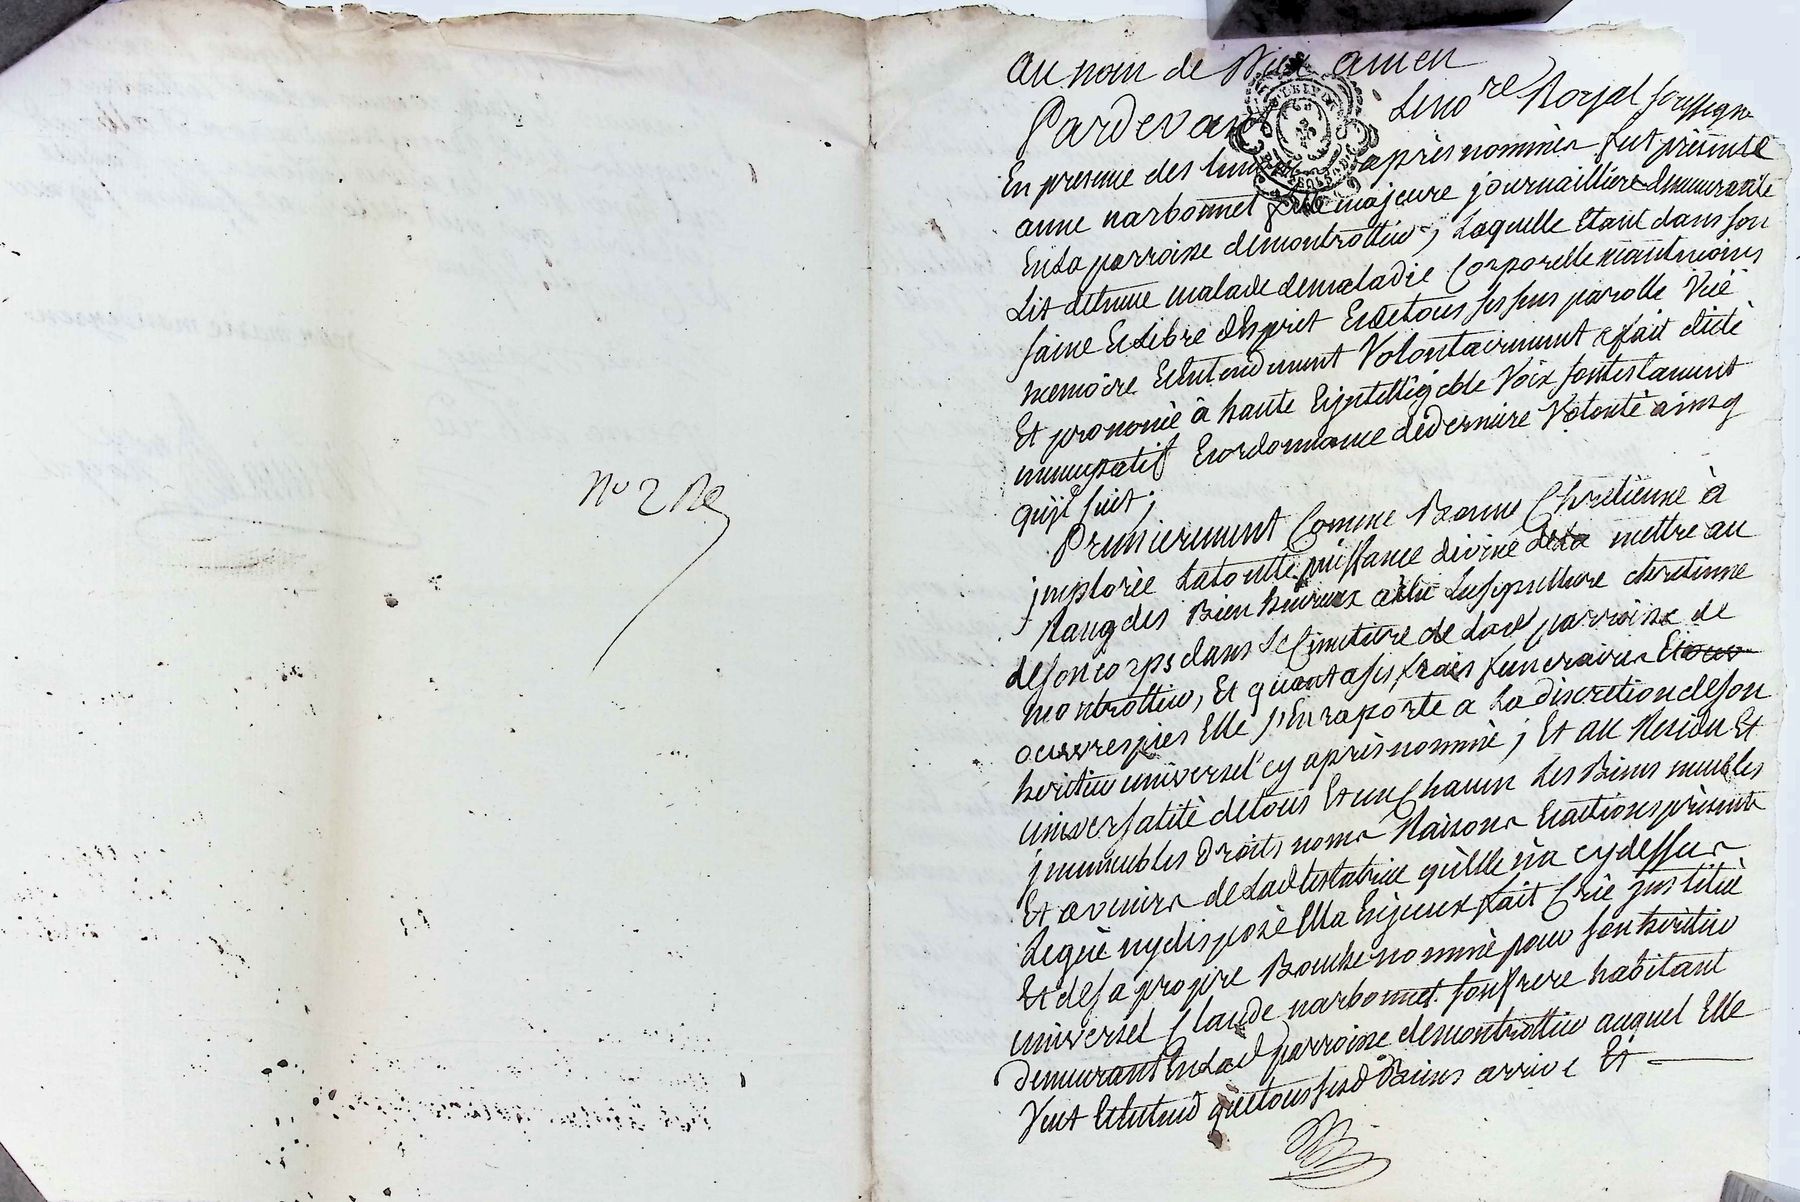 No 2 Re
au nom de Dieu amen
Pardevant Le no.re Royal soussigne
En presence des temoins après nommés fut présente
anne narbonnet fille majeure journailliere demeurante
En la parroisse de montrottier, Laquelle Etant dans son
Lit detenue malade de maladie Corporelle néantmoins
saine Et Libre d'Esprit Et de tous ses sens parolle Vüe
memoire Et Entendement Volontairement a fait dicté
Et prononcé à haute Et jntelligeble Voix son testament
nuncupatif Et ordonnance de derniere Volonté ainsy
qu'jl suit;
Premierement Comme Bonne Chretienne à
jmplorée La toutte puissance divine de la mettre au
Rang des Bien heureux a élu La sepulture chretienne
de son corps dans Le Cimetiere de lad parroisse de
montrottier, Et quant a ses frais funeraires Et ouv
oeuvres pies Elle s'En raporte a La discretion de son
heritier universel cy après nommé; Et au Residu Et
universalité de tous Et un Chacun Les Biens meubles
jmmeubles Droits noms Raisons Et actions présents
Et avenirs de Lad testatrice qu'elle n'a cy dessus
Legué ny disposé Ella Enjceux fait Crée jnstitué
Et de sa propre Bouche nommé pour son heritier
universel Claude narbonnet son frere habitant
demeurant En Lad parroisse de montrottier auquel Elle
Veut Et Entend que tous sesd Biens arrive Et